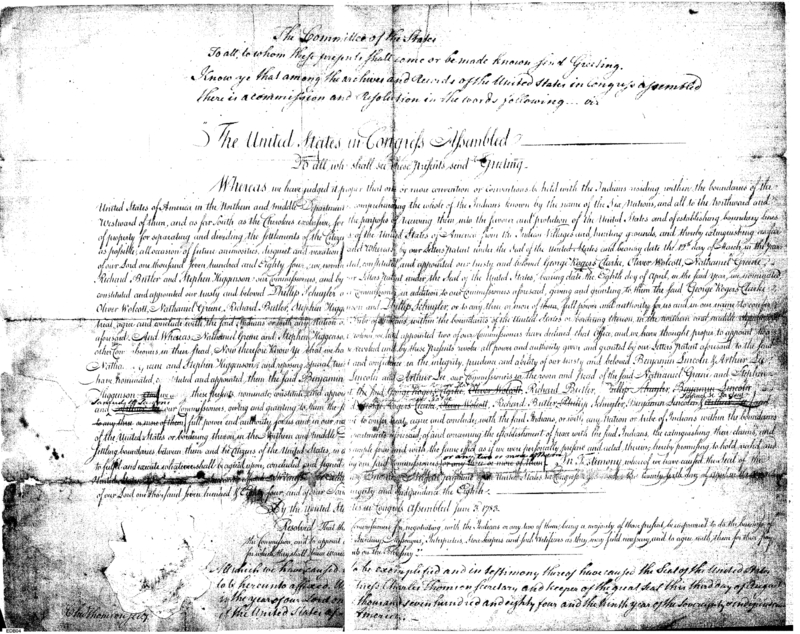 The Committee of the States
To all, to whom these presents shall come or be made known send Greeting.
Know ye that among the archives and Records of the United States in Congress assembled
there is a commission and Resolution in the words following... viz
"The United States in Congress Assembled
To all who shall see these Presents, send Greeting.
Whereas we have judged it proper that one or more convention or conventions be held with the Indians residing within the boundaries of the
United States of America in the Northern and middle Department comprehending the whole of the Indians known by the name of the Six Nations, and all to the Northward and
Westward of them, and as far South as the Cherokees exclusive, for the purposes of drawing them into the favour and protection of the United States and establishing boundary lines
of property for separating and dividing the settlements of the Citizens of the United States of America from the Indian Villages and hunting grounds, and thereby extinguishing as far
as possible, all occasion of future animosities, disquiet and contention and whereas by our letters patent under the Seal of the United States and bearing date the of March, in the year
of our Lord one thousand, seven hundred and Eighty four, we constituted, and appointed our trusty and beloved George Rogers Clarke, Oliver Wolcott, Nathaniel Greene,
Richard Butler and Stephen Higginson our Commissioners, and by our letters Patent under the Seal of the United States, bearing date the Eighth day of April, in the said year, we nominated
constituted and appointed our trusty and beloved Phillip Schuyler a Commissioner, in addition to our Commissioners aforesaid, giving and granting to them the said George Rogers Clarke
Oliver Wolcott, Nathaniel Greene, Richard Butler, Stephen Higginson and Phillip Schuyler, or to any three or more of them, full power and authority for us and in our name to confer
treat, agree and conclude with the said Indians or with any nation or Tribe of Indians, within the boundaries of the United States or bordering thereon in the northern and middle departments
aforesaid. And Whereas Nathaniel Greene and Stephen Higginson two of our Commissioners have declined that Office, and we have thought proper to appoint two
other Commissioners in their stead, Now therefore Know Ye that we have revoked and by these Presents revoke all power and authority given and granted by our Letters patent aforesaid to the said
Nathaniel Greene and Stephen Higginson and reposing special trust and confidence in the integrity, prudence and ability of our trusty and beloved Benjamin Lincoln & Arthur Lee
have Nominated, constituted and appointed them the said Benjamin Lincoln and Arthur Lee our Commissioners in the room and stead of the said Nathaniel Greene and Stephen
Higginson these presents, nominate constitute and appoint the said George Rogers Clarke, Oliver Wolcott, Richard Butler, Phillip Schuyler, Benjamin Lincoln
and our Commissioners, giving and granting to them the said George Rogers Clarke, Oliver Wolcott, Richard Butler, Phillip Schuyler, Benjamin Lincoln
to any three or more of them full power and authority for us and in our name to confer, treat, agree and conclude, with the said Indians, or with any nation or tribe of Indians within the boundaries
of the United States or bordering thereon, in the Northern and middle Departments aforesaid, of and concerning the establishment of peace with the said Indians, the extinguishing their claims, and
settling boundaries between them and the Citizens of the United States, in as ample form and with the same effect as if we were personally present and acted therein, hereby promising to hold valid, and
or any two or more of them
to fulfil and execute whatever shall be agreed upon, concluded and signed by our said Commissioners or any three or more of them. In Testimony whereof we have caused the Seal of the
United States
of our Lord, one thousand, seven hundred & Eighty four, and of our Sovereignty and Independence the Eighth.
By the United States in Congress Assembled June 3. 1783.
Resolved That the Commissioners for negotiating with the Indians or any two of them, being a majority of those present, be empowered to do the business of
the Commission, and to appoint Messengers, Interpreters, Store keepers and as they may find necessary, and to agree with them for their pay
for which they shall draw on the Treasury.
All which we have caused to be exemplified and in testimony thereof have caused the Seal of the United States
to be hereunto affixed. Witness Charles Thomson Secretary and keeper of the great Seal this third day of August
in the year of our Lord one thousand seven hundred and eighty four and the ninth year of the Sovereignty & independence
of the United States of America.
Cha Thomson secy.
EDB04